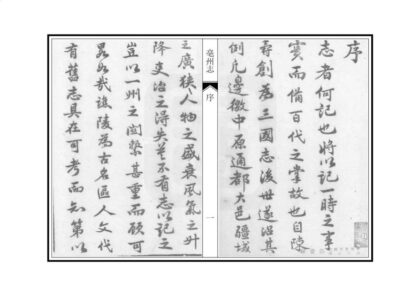 序
志者何記也將以記一時之事
實而備百代之掌故也自陳
壽創為三國志後世遂沿其
例凡邊徼中原通都大邑疆域
亳州志
序
一
之廣狹人物之盛衰風氣之升
降吏治之得失莫不有志以記之
豈以一州之關繫甚重而顧可
如哉譙陵為古名區人文代
有舊志具在可考而知第以